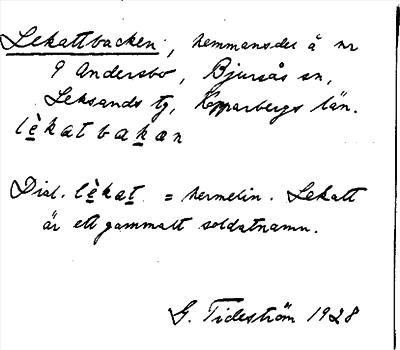 Lekattbacken, hemmansdel å nr
9 Andersbo, Bjursås sn,
Leksands tg, Kopparbergs län.
lèkatbakan
Dial. lèkat = hermelin. Lekatt
är ett gammalt soldatnamn.
G. Tideström 1928